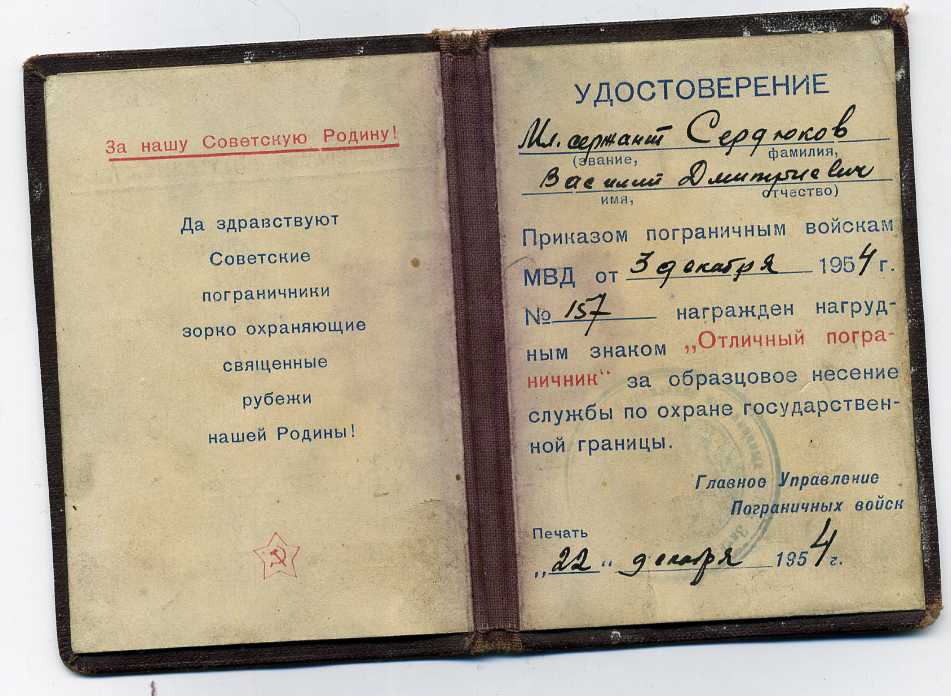 За нашу Советскую Родину!
Да здравствуют
Советские
пограничники
зорко охраняющие
священные
рубежи
нашей Родины!
УДОСТОВЕРЕНИЕ
Мл. сержант Сердюков
(звание, фамилия,
Василий Дмитриевич
имя, отчество)
Приказом пограничным войскам
МВД от 3 декабря 1954 г.
№ 157 награжден нагруд-
ным знаком „Отличный погра-
ничник“ за образцовое несение
службы по охране государствен-
ной границы.
Главное Управление
Пограничных войск
Печать
„22“ декабря 1954 г.